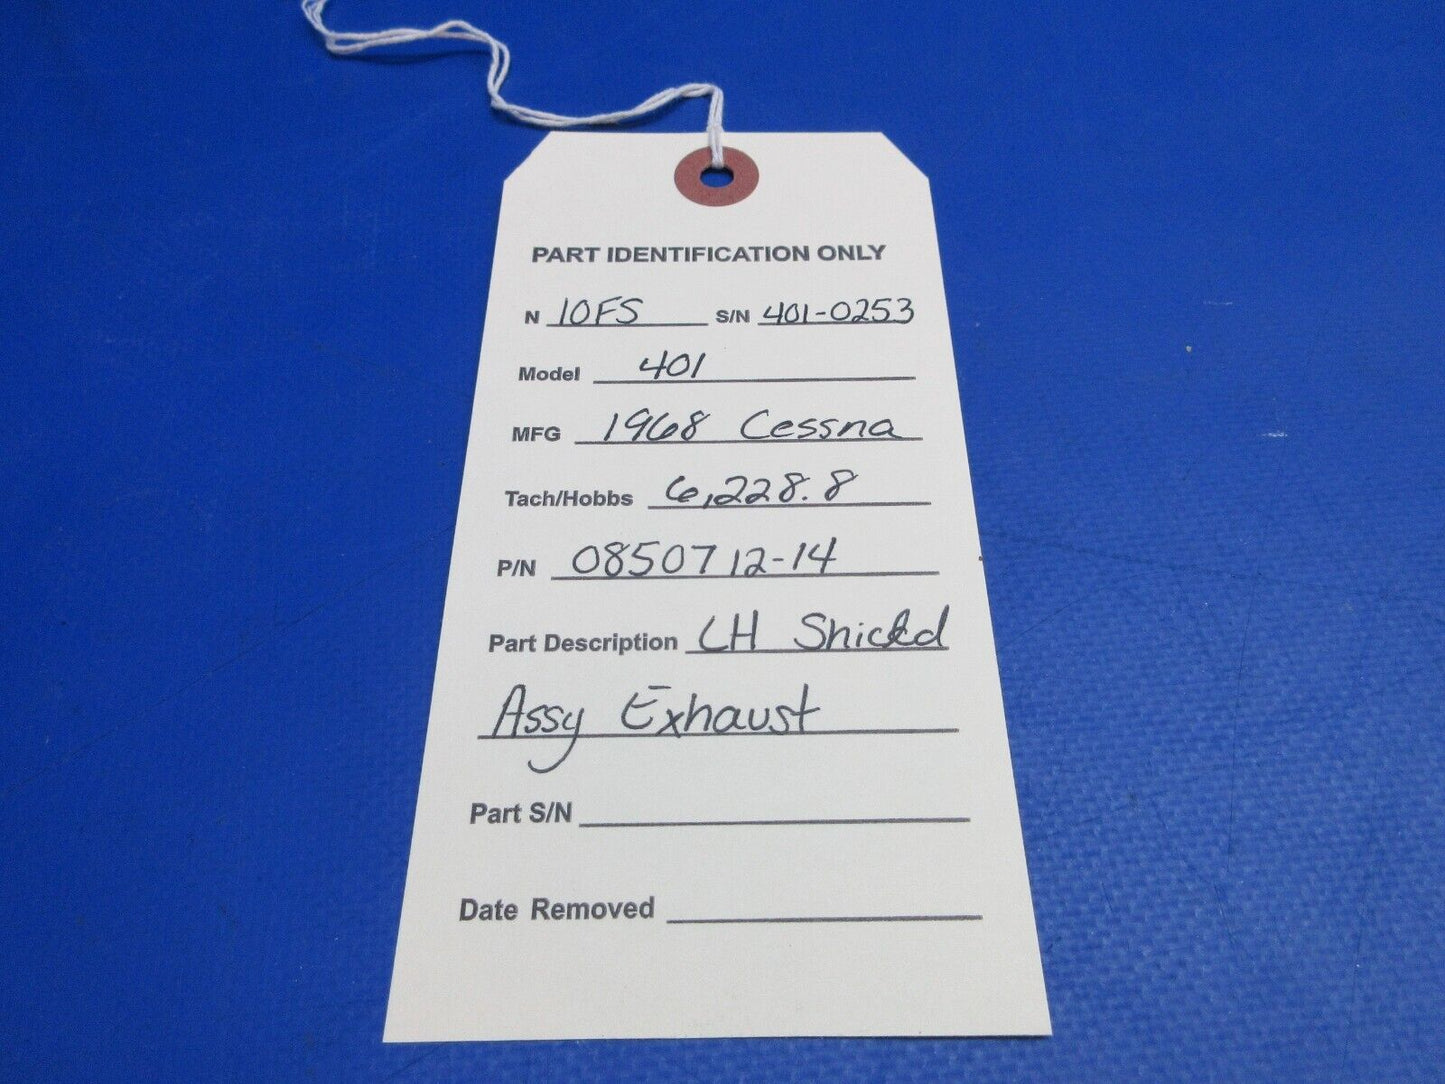 PART IDENTIFICATION ONLY
N 10FS S/N 401-0253
Model 401
MFG 1968 Cessna
Tach/Hobbs 6,228.8
P/N 0850712-14
Part Description LH Shield
Assy Exhaust
Part S/N
Date Removed